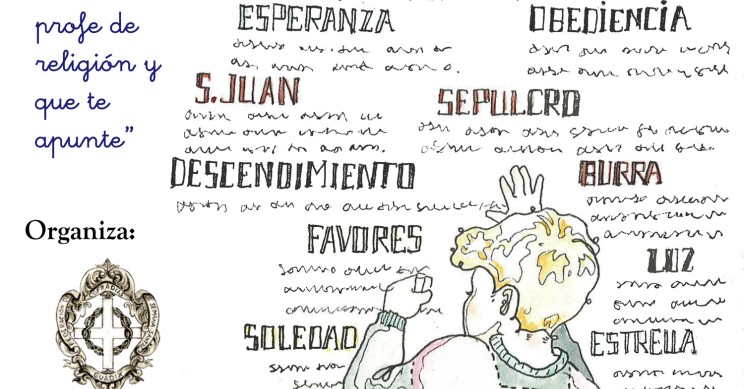 profe de
religión y
que te
apunte”
Organiza:
ESPERANZA
OBEDIENCIA
S.JUAN
SEPULCRO
DESCENDIMIENTO
BURRA
FAVORES
LUZ
SOLEDAD
ESTRELLA